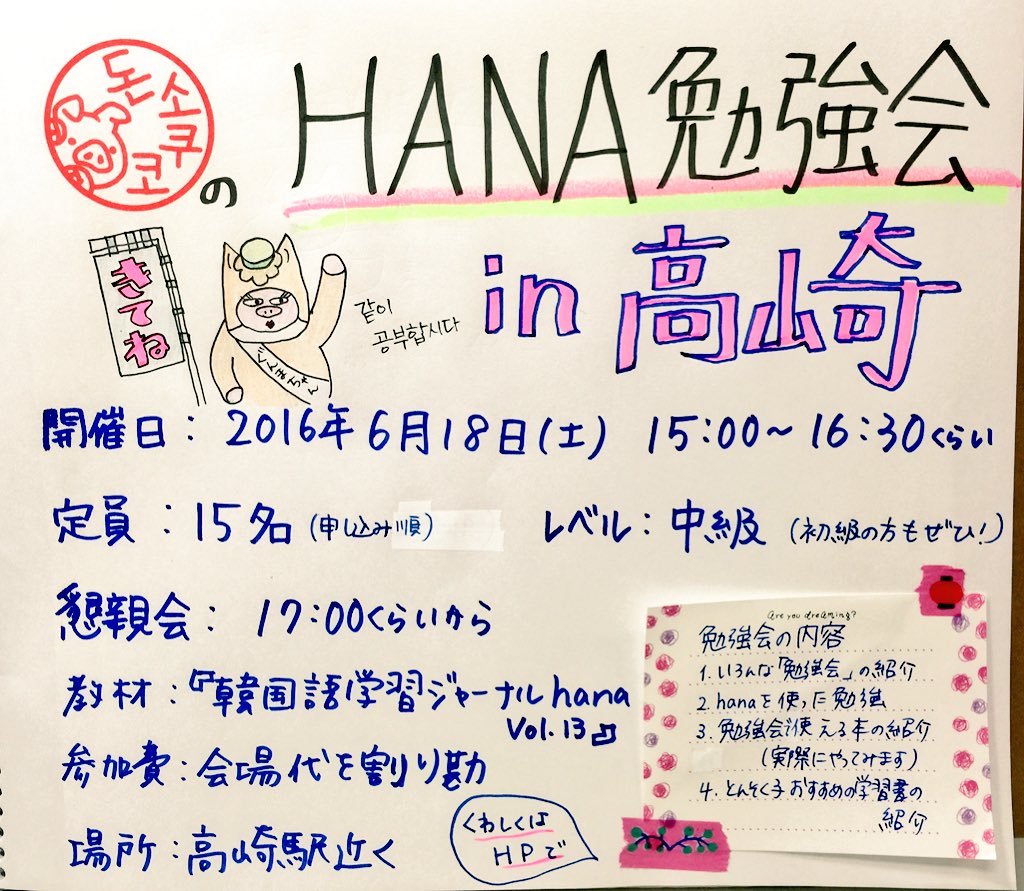 돈소쿠코
の HANA勉強会
in 高崎
きてね
ぐんまちゃん
같이
공부합시다
開催日：2016年6月18日(土) 15:00～16:30くらい
定員：15名(申し込み順)
レベル：中級 (初級の方もぜひ!)
懇親会：17:00くらいから
教材：『韓国語学習ジャーナルhana
Vol.13』
参加費：会場代を割り勘
場所：高崎駅近く
くわしくは
HPで
Are you dreaming?
勉強会の内容
1. いろんな「勉強会」の紹介
2. hanaを使った勉強
3. 勉強会で使える本の紹介
(実際にやってみます)
4. とんそく子おすすめの学習書の
紹介